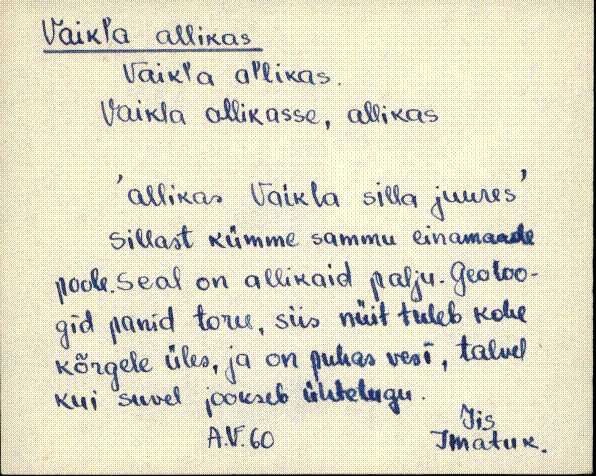 Vaik'la allikas
Vaik'la a'llikas.
Vaikla allikasse, allikas
'allikas Vaikla silla juures'
Sillast kümme sammu einamaade
poole. Seal on allikaid palju. Geoloo-
gid panid toru, siis nüit tuleb kohe
kõrgele üles, ja on puhas vesi, talvel
kui suvel jookseb ühtelugu.
Jis
A.V. 60
Imatuk.